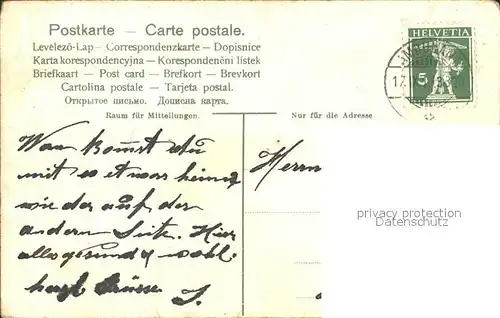 Postkarte – Carte postale.
Levelezö-Lap – Correspondenzkarte – Dopisnice
Karta korespondencyjna – Korespondenčni listek
Briefkaart – Post card – Brefkort – Brevkort
Cartolina postale – Tarjeta postal.
Открытое письмо. Дописна карта.
HELVETIA
5
Raum für Mitteilungen.
Nur für die Adresse
Wan kommst du
mit so etwas heim
wie der auf der
andern Seite. Hier
alles gesund & wohl
herzl Grüsse J.
Herrn
privacy protection
Datenschutz